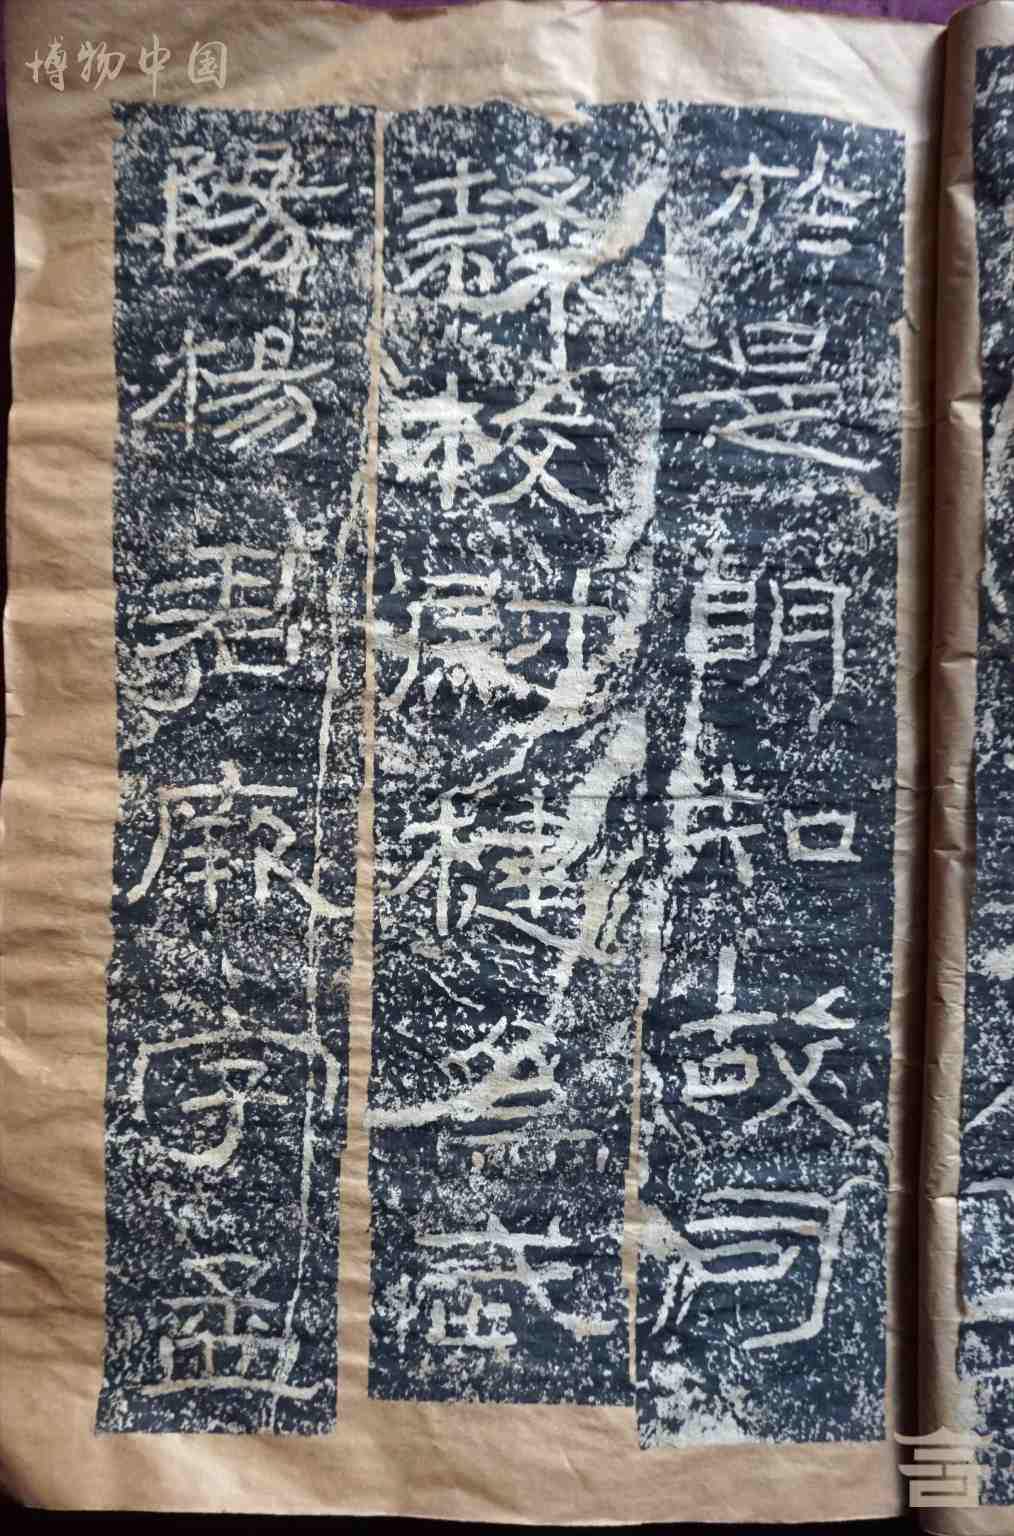 博物中国
於是明知故司
隸校尉楗為武
陽楊君厥字孟